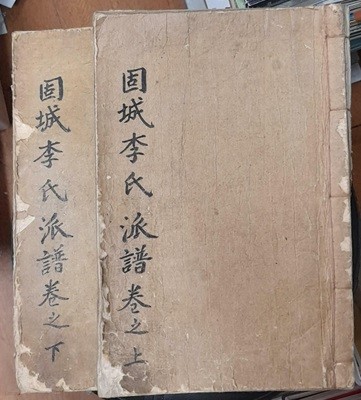 固城李氏派譜卷之上
固城李氏派譜卷之下